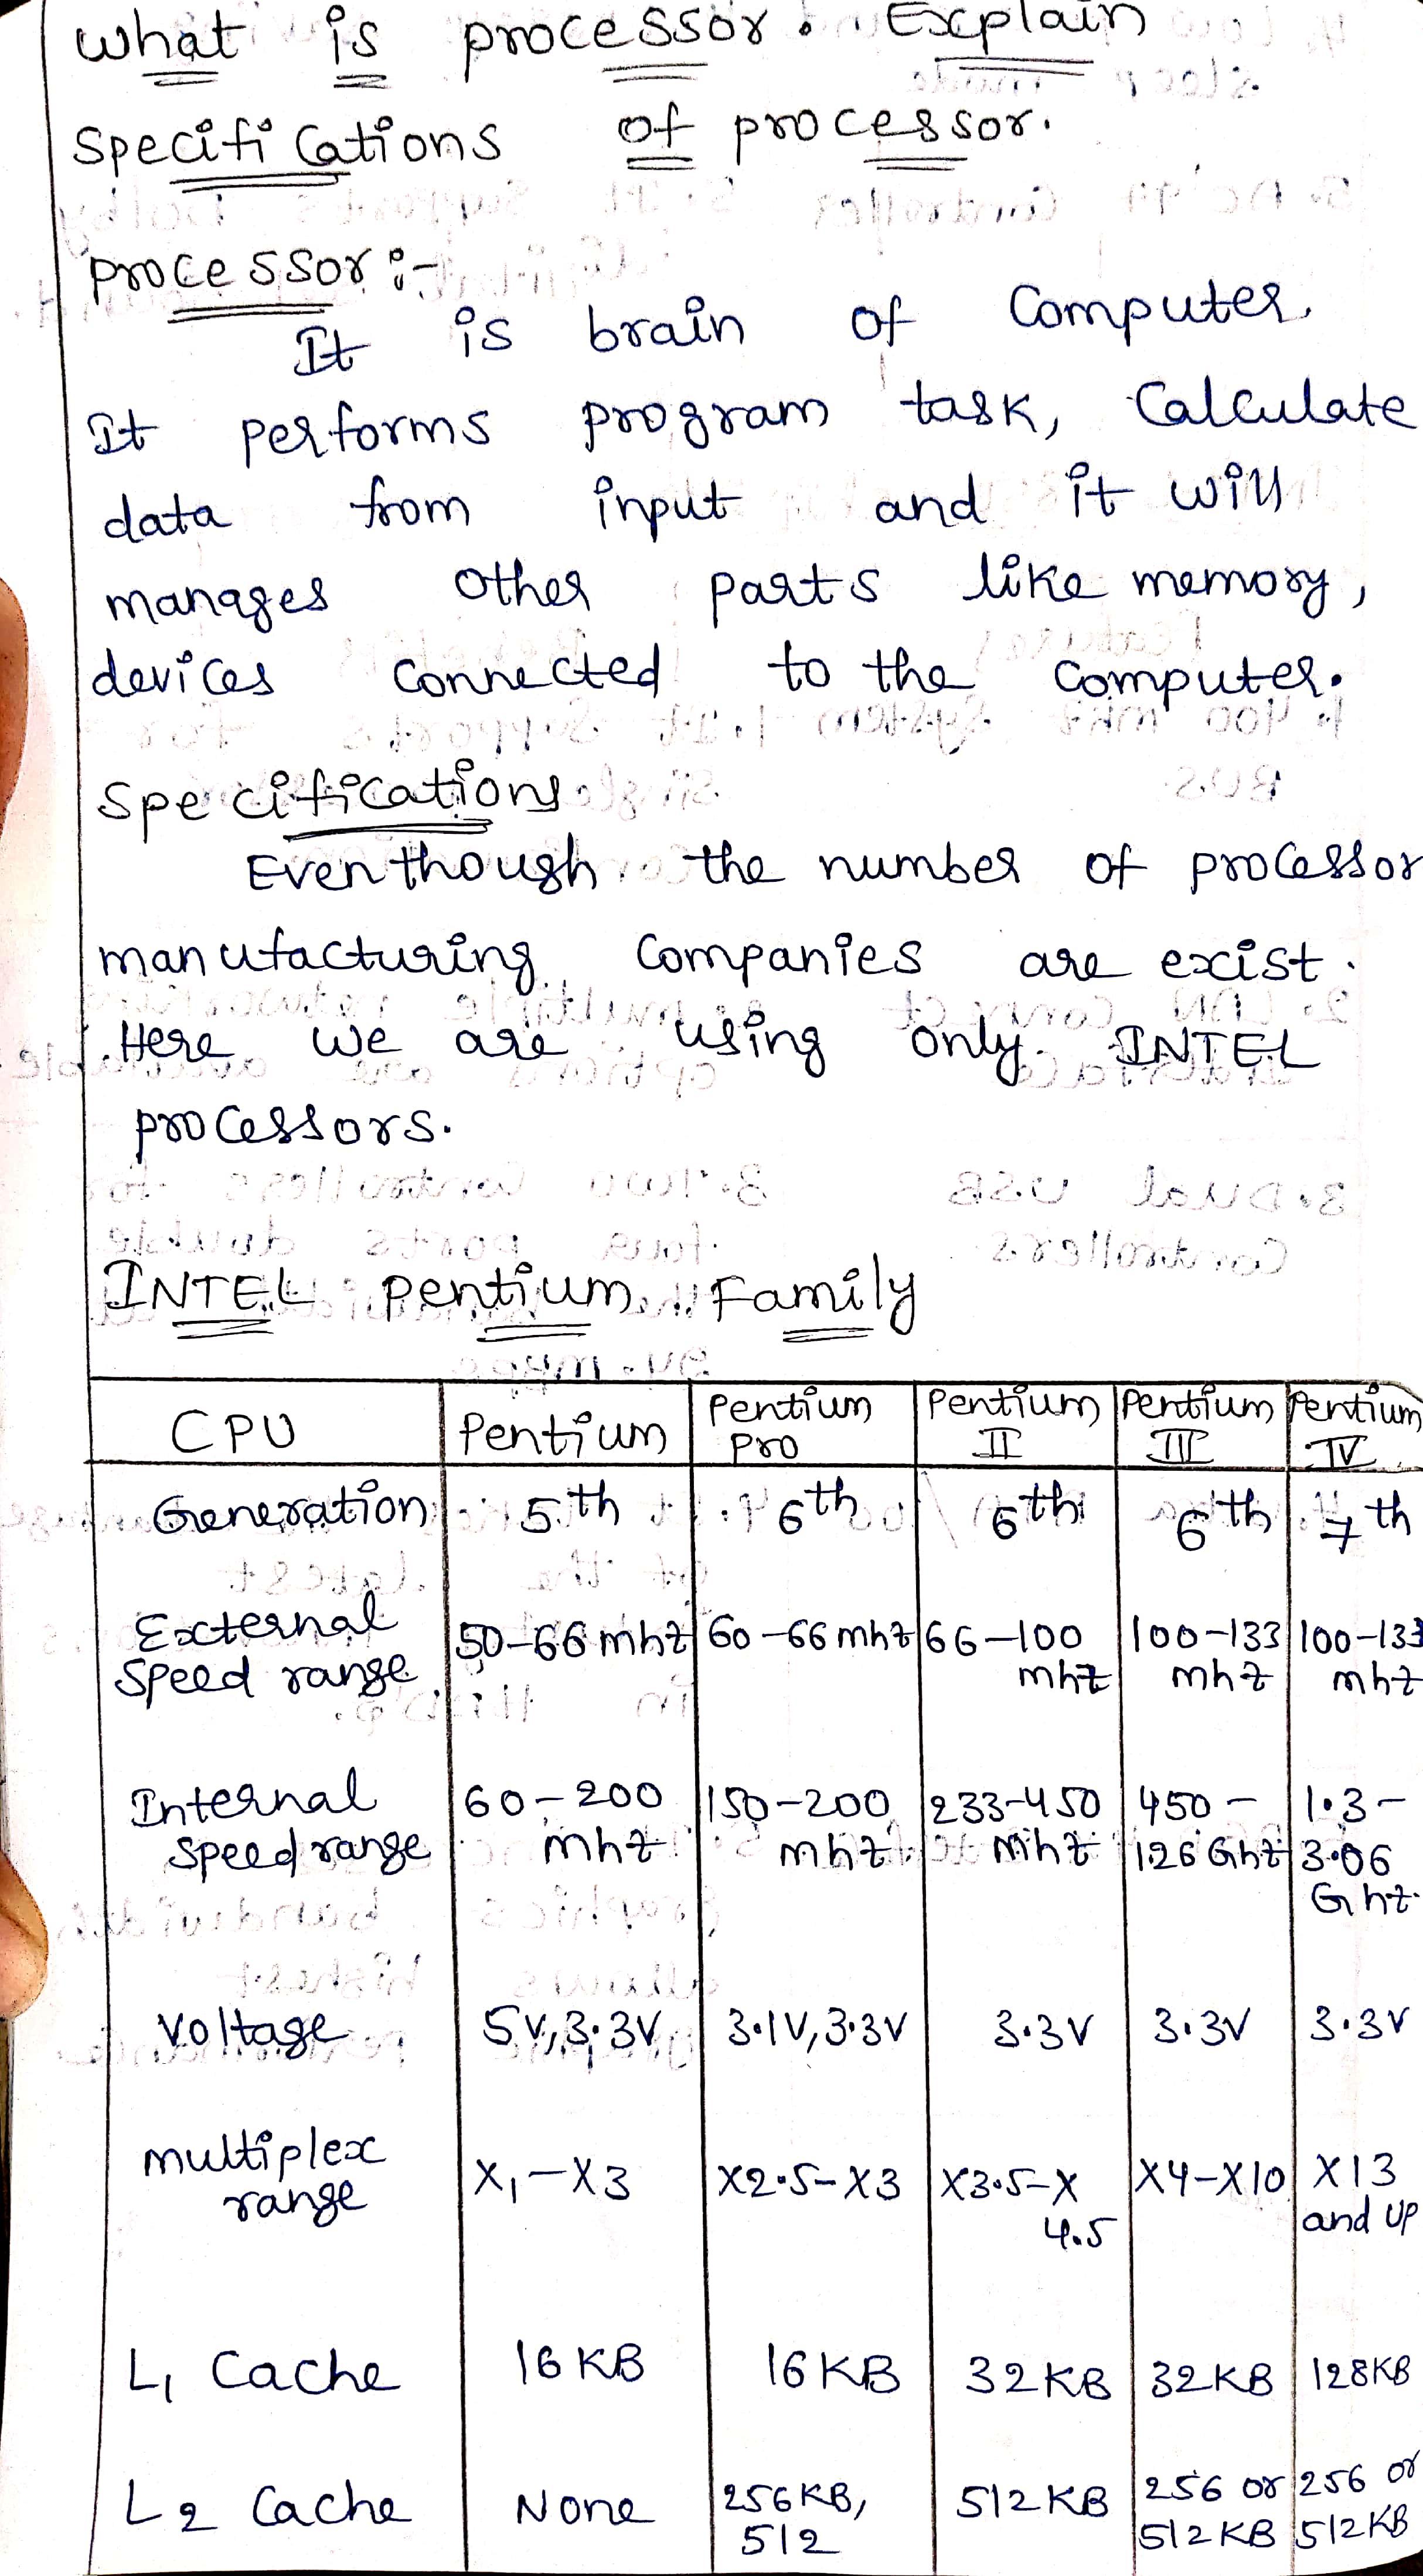 What is processor. Explain
Specifications of processor.
processor:-
It is brain of Computer.
It performs program task, Calculate
data from input and it will
manages other parts like memory,
devices connected to the computer.
Specifications
Eventhough the number of processor
manufacturing Companies are exist.
Here we are using only INTEL
processors.
INTEL pentium Family
CPU | Pentium | Pentium Pro | Pentium II | Pentium III | Pentium IV
Generation | 5th | 6th | 6th | 6th | 7th
External Speed range | 50-66 mhz | 60-66 mhz | 66-100 mhz | 100-133 mhz | 100-133 mhz
Internal Speed range | 60-200 mhz | 150-200 mhz | 233-450 mhz | 450-1.26 Ghz | 1.3-3.06 Ghz
Voltage | 5V, 3.3V | 3.1V, 3.3V | 3.3V | 3.3V | 3.3V
multiplex range | X1-X3 | X2.5-X3 | X3.5-X4.5 | X4-X10 | X13 and UP
L1 Cache | 16 KB | 16 KB | 32 KB | 32 KB | 128 KB
L2 Cache | None | 256 KB, 512 | 512 KB | 256 or 512 KB | 256 or 512 KB